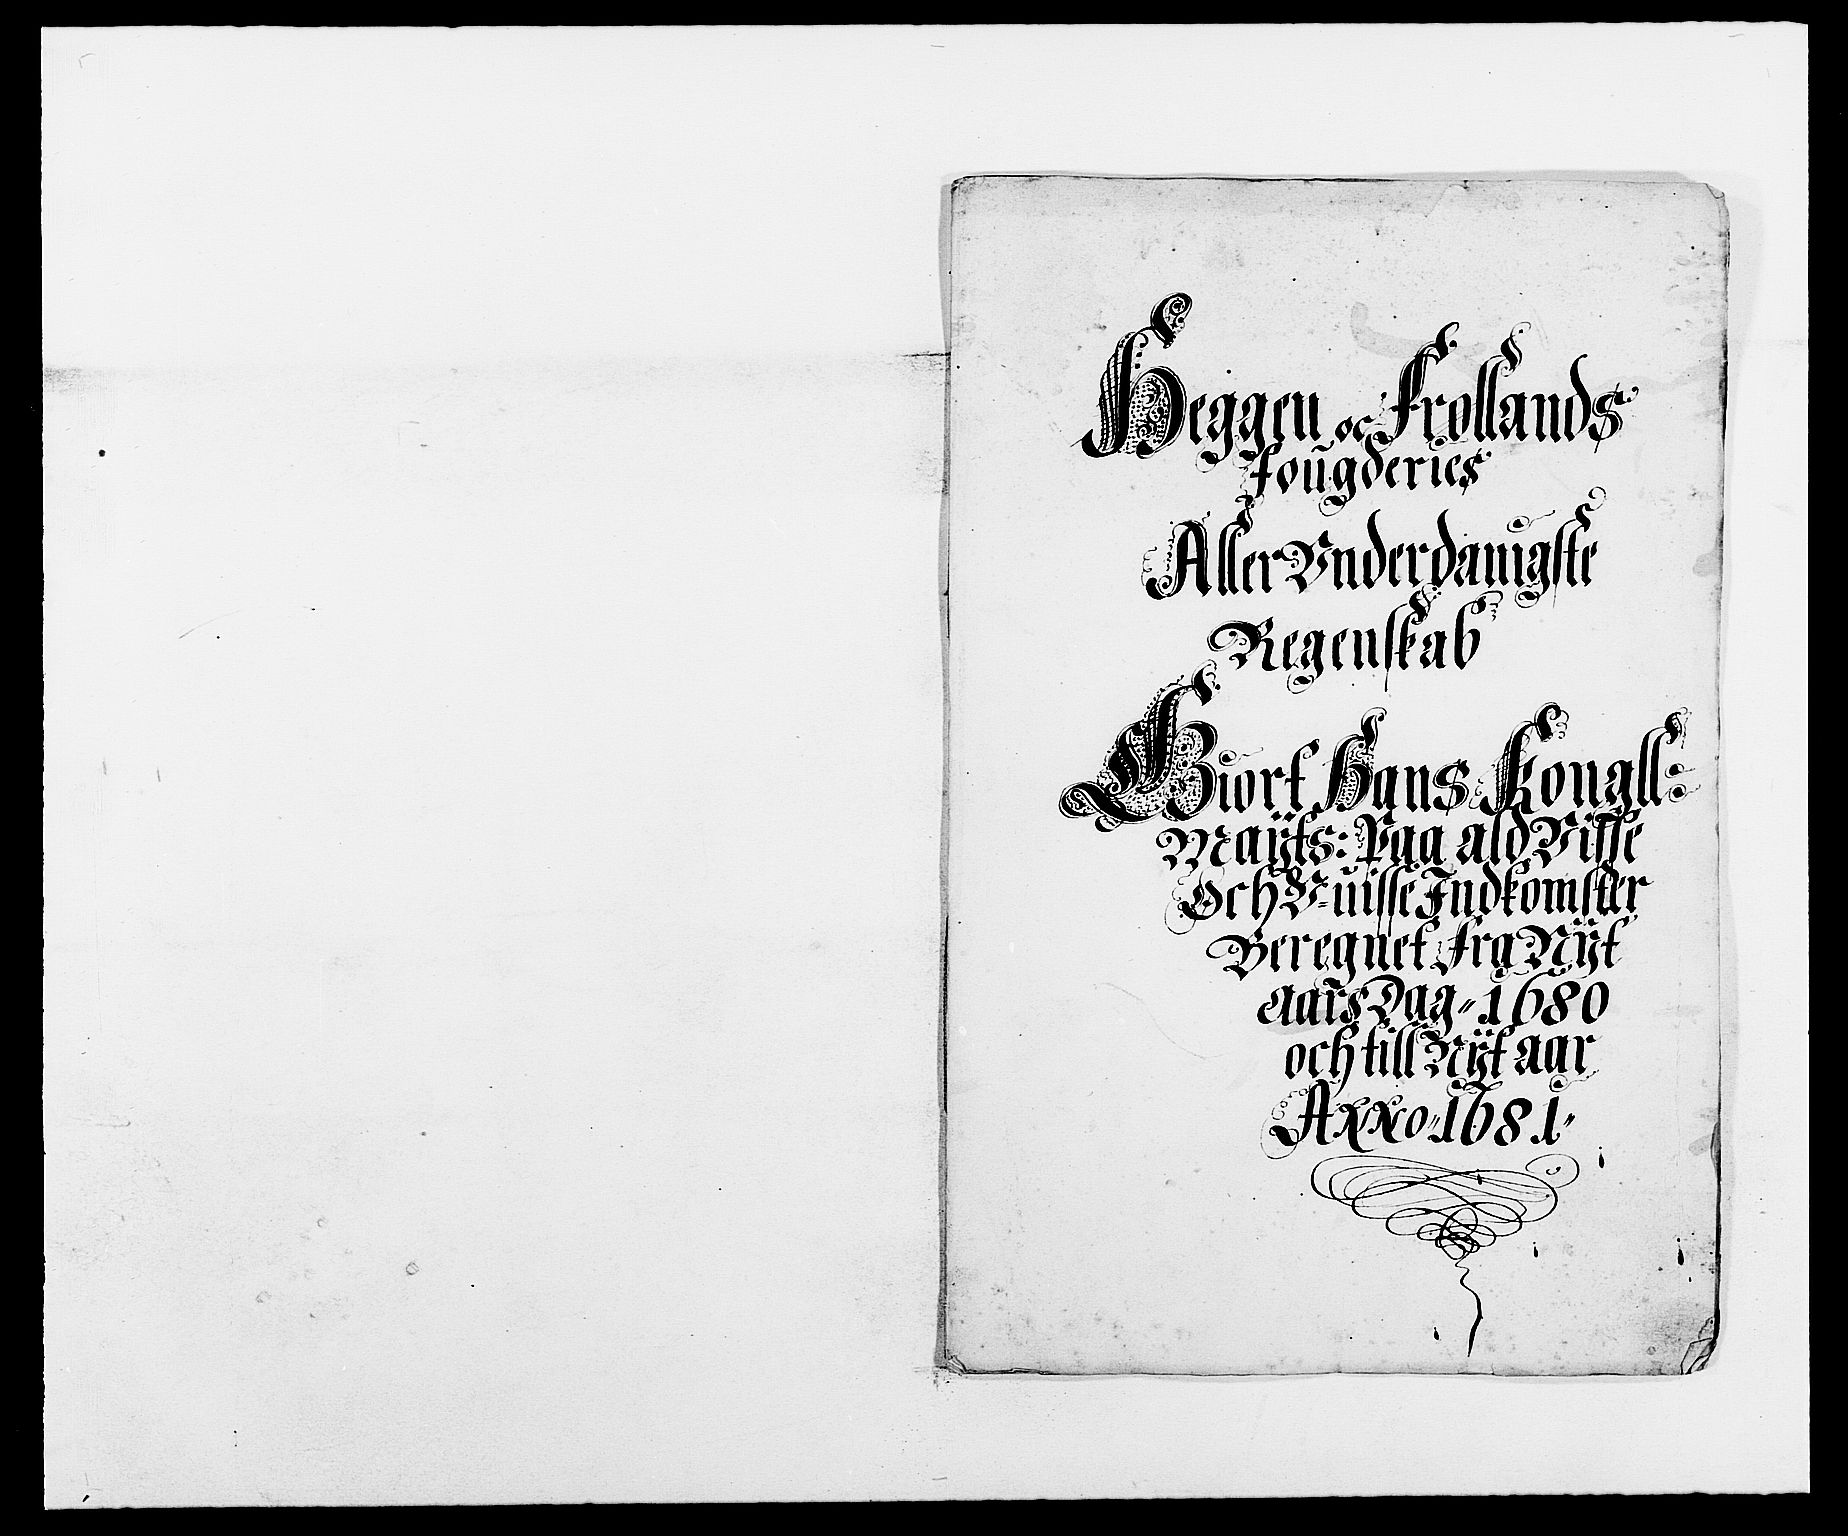 Heggen oc Frollands
fougderies
Aller Vnderdanigste
Regenskab
Giort Hans Kongll:
Maÿts: Paa ald Visse
Och V-uisse Indkomster
Beregnet fra Nÿt
aars Dag 1680
och till Nÿt aar
Anno 1681